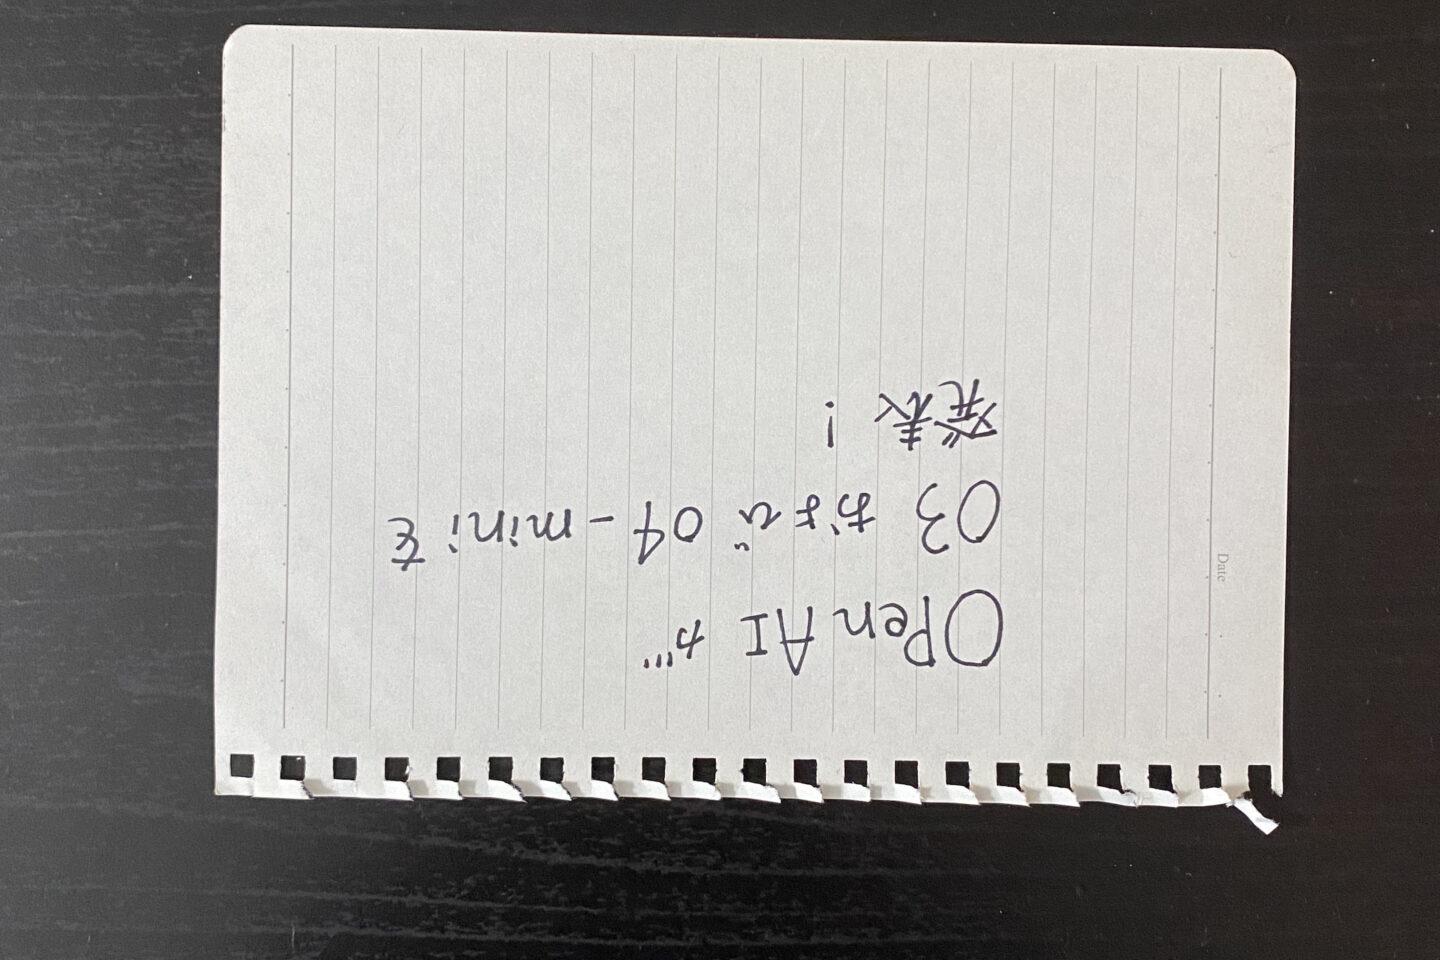 OPenAI が
O3 および o4-mini を
発表!
Date